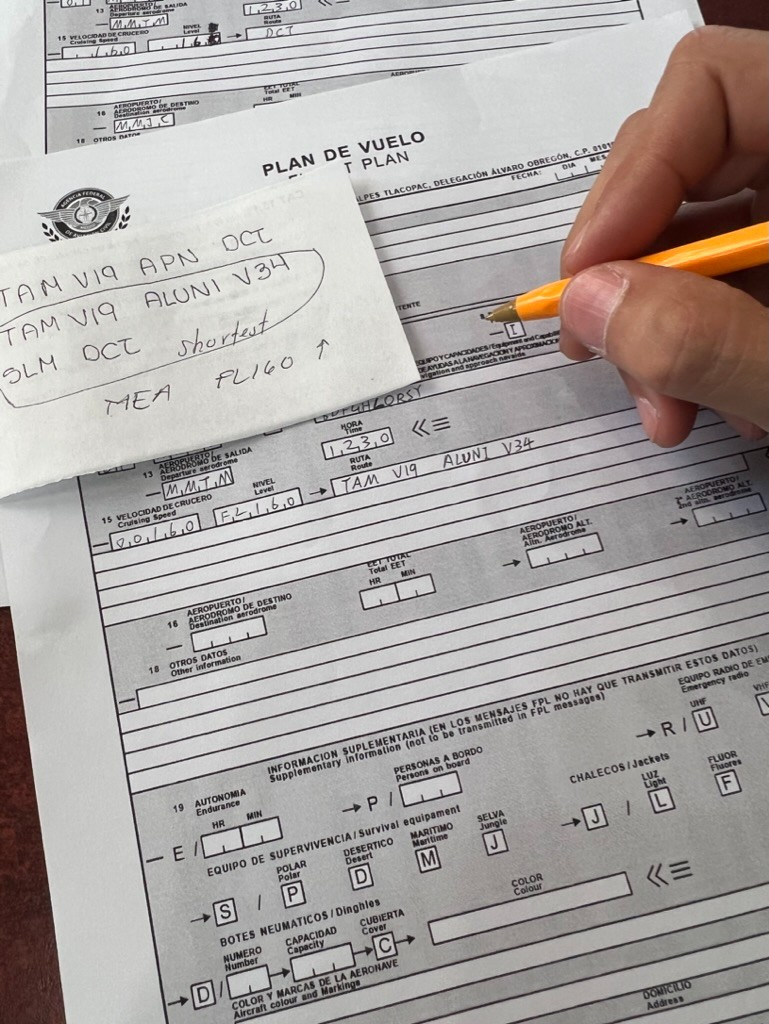 13 AEROPUERTO/
AERÓDROMO DE SALIDA
Departure aerodrome
M,M,T,M
1,2,3,0
15 VELOCIDAD DE CRUCERO
Cruising Speed
NIVEL
Level
RUTA
Route
DCT
16 AEROPUERTO/
AERÓDROMO DE DESTINO
Destination aerodrome
HR MIN
M,M,J,C
18 OTROS DATOS
PLAN DE VUELO
PLAN
ALPES TLACOPAC, DELEGACIÓN ÁLVARO OBREGÓN, C.P.
FECHA: DIA MES
AGENCIA FEDERAL
TAM V19 APN DCT
TAM V19 ALUNI V34
SLM DCT shortest
MEA FL160 ↑
I
HORA
Time
1,2,3,0
13 AEROPUERTO/
AERÓDROMO DE SALIDA
Departure aerodrome
M,M,T,M
15 VELOCIDAD DE CRUCERO
Cruising Speed
0,0,1,6,0
NIVEL
Level
F,L,1,6,0
RUTA
Route
TAM V19 ALUNI V34
16 AEROPUERTO/
AERÓDROMO DE DESTINO
Destination aerodrome
EET TOTAL
Total EET
HR MIN
AEROPUERTO/
AERÓDROMO ALT.
Altn. Aerodrome
AEROPUERTO/
AERÓDROMO ALT.
2nd altn. aerodrome
18 OTROS DATOS
Other information
INFORMACION SUPLEMENTARIA (EN LOS MENSAJES FPL NO HAY QUE TRANSMITIR ESTOS DATOS)
Supplementary information (not to be transmitted in FPL messages)
19 AUTONOMIA
Endurance
HR MIN
E /
PERSONAS A BORDO
Persons on board
P /
EQUIPO RADIO DE EM
Emergency radio
UHF VHF
R / U V
EQUIPO DE SUPERVIVENCIA / Survival equipament
S /
POLAR
Polar
P
DESERTICO
Desert
D
MARITIMO
Maritime
M
SELVA
Jungle
J
CHALECOS / Jackets
J /
LUZ
Light
L
FLUOR
Fluores
F
BOTES NEUMATICOS / Dinghies
D /
NUMERO
Number
CAPACIDAD
Capacity
CUBIERTA
Cover
C
COLOR
Colour
COLOR Y MARCAS DE LA AERONAVE
Aircraft colour and Markings
DOMICILIO
Address